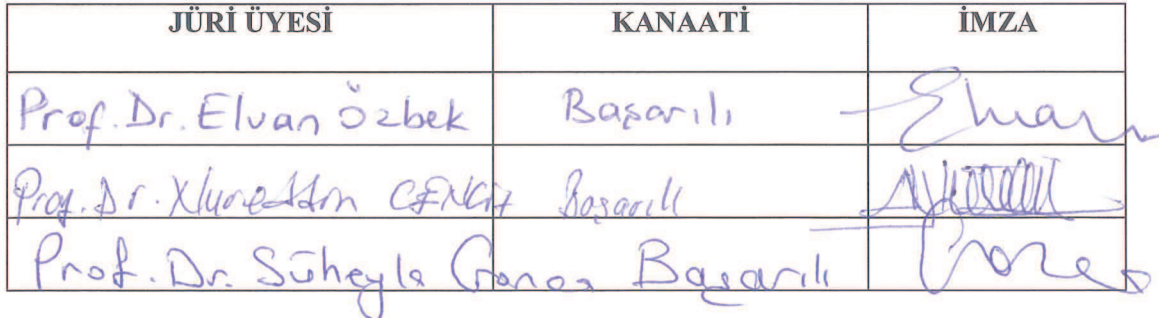 JÜRİ ÜYESİ KANAATİ İMZA
Prof. Dr. Elvan Özbek Başarılı Elvan
Prof. Dr. Nureddin CENGİZ Başarılı
Prof. Dr. Süheyla Başarılı